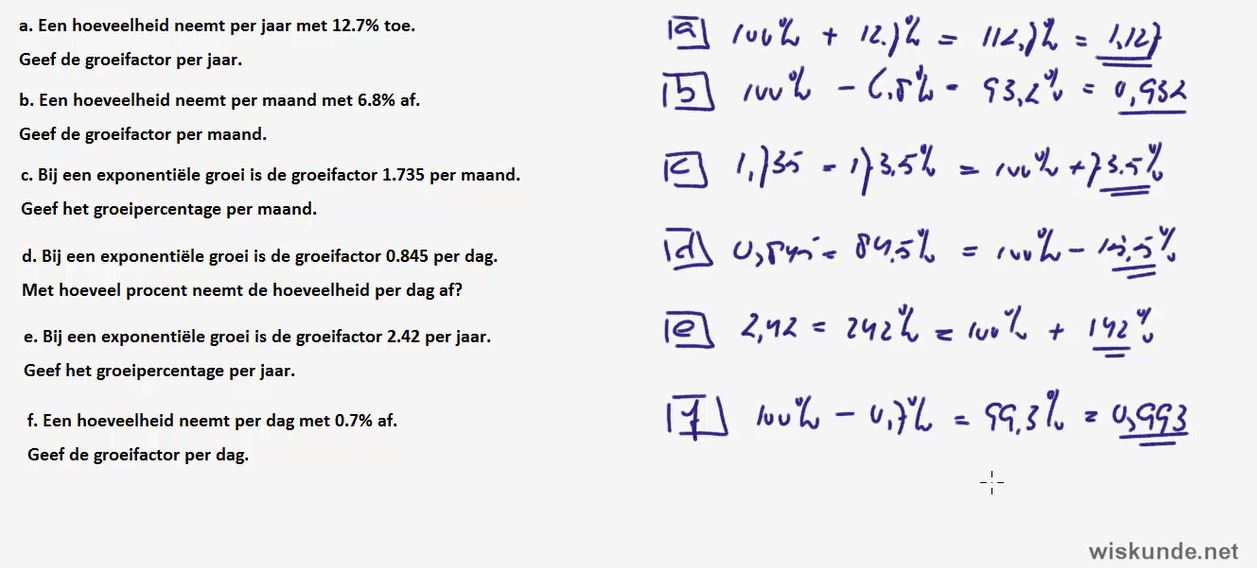 a. Een hoeveelheid neemt per jaar met 12.7% toe.
Geef de groeifactor per jaar.
b. Een hoeveelheid neemt per maand met 6.8% af.
Geef de groeifactor per maand.
c. Bij een exponentiële groei is de groeifactor 1.735 per maand.
Geef het groeipercentage per maand.
d. Bij een exponentiële groei is de groeifactor 0.845 per dag.
Met hoeveel procent neemt de hoeveelheid per dag af?
e. Bij een exponentiële groei is de groeifactor 2.42 per jaar.
Geef het groeipercentage per jaar.
f. Een hoeveelheid neemt per dag met 0.7% af.
Geef de groeifactor per dag.
a 100% + 12.7% = 112,7% = 1,127
b 100% - 6,8% = 93,2% = 0,932
c 1,735 = 173,5% = 100% + 73.5%
d 0,845 = 84,5% = 100% - 15,5%
e 2,42 = 242% = 100% + 142%
f 100% - 0,7% = 99,3% = 0,993
wiskunde.net